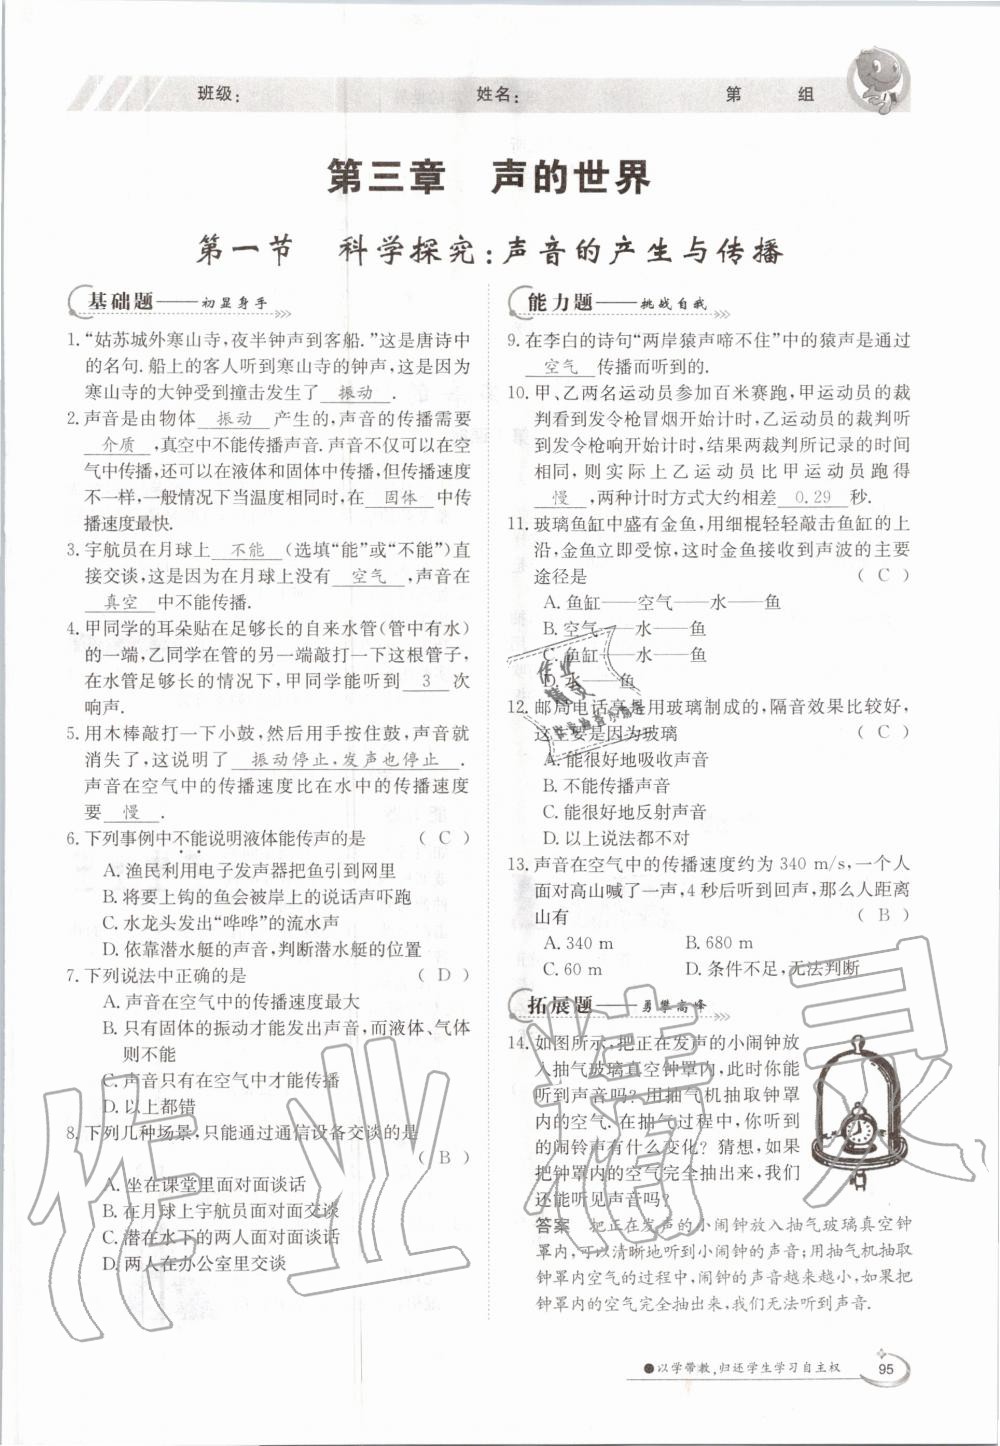 班级: 姓名: 第 组
第三章 声的世界
第一节 科学探究:声音的产生与传播
基础题——初显身手
1.“姑苏城外寒山寺,夜半钟声到客船.”这是唐诗中
的名句.船上的客人听到寒山寺的钟声,这是因为
寒山寺的大钟受到撞击发生了 振动 .
2.声音是由物体 振动 产生的,声音的传播需要
介质 ,真空中不能传播声音.声音不仅可以在空
气中传播,还可以在液体和固体中传播,但传播速度
不一样,一般情况下当温度相同时,在 固体 中传
播速度最快.
3.宇航员在月球上 不能 (选填“能”或“不能”)直
接交谈,这是因为在月球上没有 空气 ,声音在
真空 中不能传播.
4.甲同学的耳朵贴在足够长的自来水管(管中有水)
的一端,乙同学在管的另一端敲打一下这根管子,
在水管足够长的情况下,甲同学能听到 3 次
响声.
5.用木棒敲打一下小鼓,然后用手按住鼓,声音就
消失了,这说明了 振动停止,发声也停止 .
声音在空气中的传播速度比在水中的传播速度
要 慢 .
6.下列事例中不能说明液体能传声的是 ( C )
A.渔民利用电子发声器把鱼引到网里
B.将要上钩的鱼会被岸上的说话声吓跑
C.水龙头发出“哗哗”的流水声
D.依靠潜水艇的声音,判断潜水艇的位置
7.下列说法中正确的是 ( D )
A.声音在空气中的传播速度最大
B.只有固体的振动才能发出声音,而液体、气体
则不能
C.声音只有在空气中才能传播
D.以上都错
8.下列几种场景,只能通过通信设备交谈的是
( B )
A.坐在课堂里面对面谈话
B.在月球上宇航员面对面交谈
C.潜在水下的两人面对面交谈
D.两人在办公室里交谈
能力题——挑战自我
9.在李白的诗句“两岸猿声啼不住”中的猿声是通过
空气 传播而听到的.
10.甲、乙两名运动员参加百米赛跑,甲运动员的裁
判看到发令枪冒烟开始计时,乙运动员的裁判听
到发令枪响开始计时,结果两裁判所记录的时间
相同,则实际上乙运动员比甲运动员跑得
慢 ,两种计时方式大约相差 0.29 秒.
11.玻璃鱼缸中盛有金鱼,用细棍轻轻敲击鱼缸的上
沿,金鱼立即受惊,这时金鱼接收到声波的主要
途径是 ( C )
A.鱼缸——空气——水——鱼
B.空气——水——鱼
C.鱼缸——水——鱼
D.水——鱼
12.邮局电话亭是用玻璃制成的,隔音效果比较好,
这主要是因为玻璃 ( C )
A.能很好地吸收声音
B.不能传播声音
C.能很好地反射声音
D.以上说法都不对
13.声音在空气中的传播速度约为 340 m/s,一个人
面对高山喊了一声,4 秒后听到回声,那么人距离
山有 ( B )
A.340 m B.680 m
C.60 m D.条件不足,无法判断
拓展题——勇攀高峰
14.如图所示,把正在发声的小闹钟放
入抽气玻璃真空钟罩内,此时你能
听到声音吗?用抽气机抽取钟罩
内的空气.在抽气过程中,你听到
的闹铃声有什么变化?猜想,如果
把钟罩内的空气完全抽出来,我们
还能听见声音吗?
答案 把正在发声的小闹钟放入抽气玻璃真空钟
罩内,可以清晰地听到小闹钟的声音;用抽气机抽取
钟罩内空气的过程中,闹钟的声音越来越小,如果把
钟罩内的空气完全抽出来,我们无法听到声音.
●以学带教,归还学生学习自主权
95
作业精灵
作业
精灵